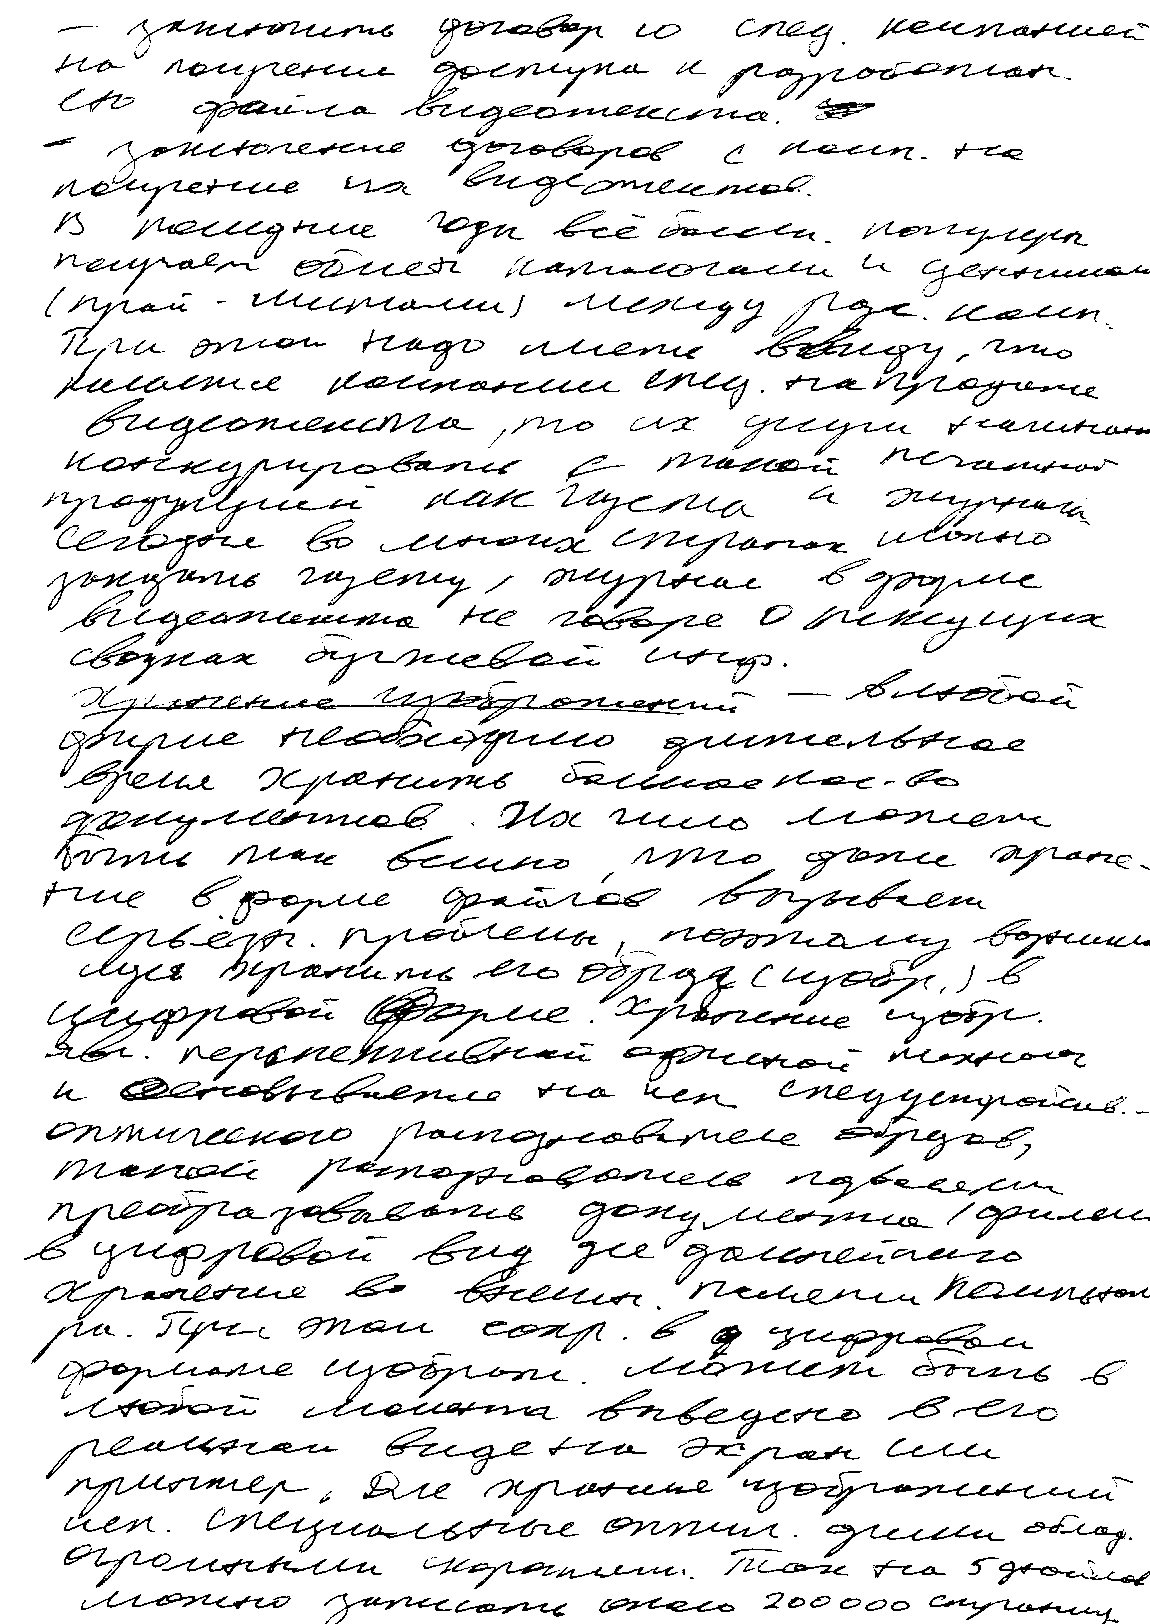 – заключить договор со спец. компанией
на получение доступа к разработан.
ею файла видеотекста.
– заключение договоров с комп. на
получение их видеотекстов.
В последние годы всё более. популярн
получает обмен каталогами и ценниками
(прай - листами) между разл. комп.
При этом надо иметь ввиду, что
многие компании спец. на продаже
видеотекста, то их услуги начинают
конкурировать с такой печатной
продукцией как газета и журнал.
Сегодня во многих странах можно
заказать газету, журнал в форме
видеотекста не говоря о текущих
сводках биржевой инф.
Хранение изображений – в любой
фирме необходимо длительное
время хранить большое кол-во
документов. Их число может
быть так велико, что даже хране-
ние в форме файлов вызывает
серьёзн. проблемы, поэтому возникла
идея хранить его образ (изобр.) в
цифровой форме. Хранение изобр.
явл. перспективной офисной технол
и основывается на исп спецустройств. –
оптического распознавателя образов,
такой распознаватель позволяет
преобразовывать документы /фильм
в цифровой вид для дальнейшего
хранения во внешн. памяти компьюте
ра. При этом сохр. в цифровом
формате изображ. может быть в
любой момент выведено в его
реальном виде на экран или
принтер, Для хранения изображений
исп. специальные оптич. диски облад.
огромными скоростями. Так на 5 дюймов
можно записать около 200000 страниц